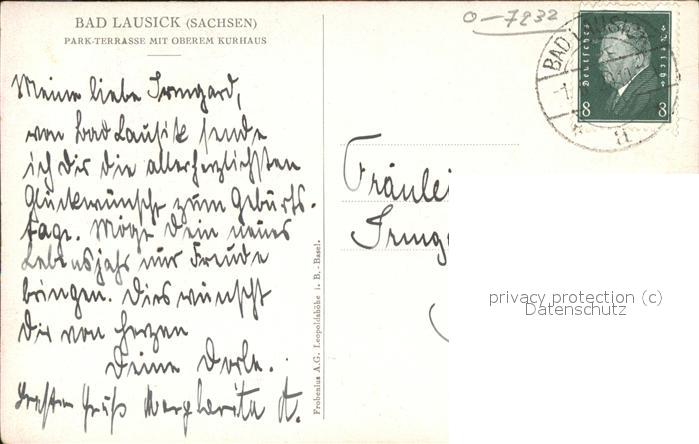 BAD LAUSICK (SACHSEN)
PARK-TERRASSE MIT OBEREM KURHAUS
Meine liebe Irmgard,
von Bad Lausick sende
ich Dir die allerherzlichsten
Glückwünsche zum Geburts-
tage. Möge Dein neues
Lebensjahr nur Freude
bringen. Dies wünscht
Dir von Herzen
Deine Dorle.
Gruß Margharita A.
Frobenius A.G. Leopoldshöhe i. B. - Basel.
0-7232
BAD LAUSICK
Deutsches Reich
8 8
Fräulei
Irmg
privacy protection (c)
Datenschutz